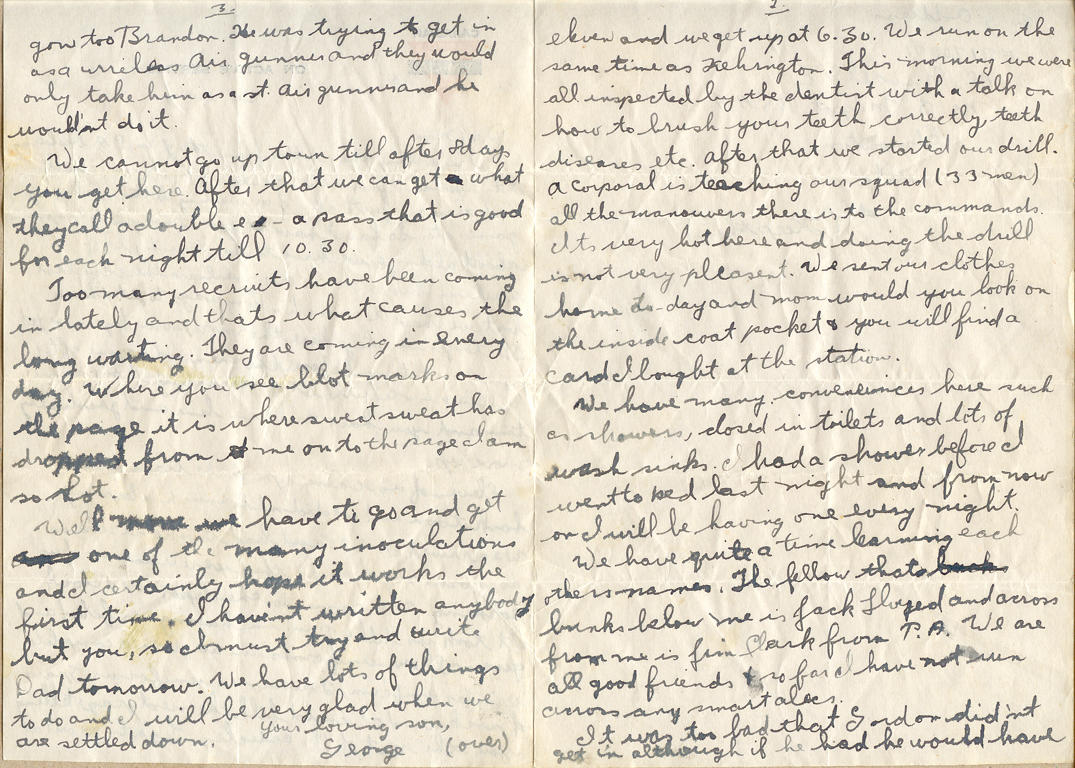 2.
eleven and we get up at 6.30. We run on the
same time as Kelvington. This morning we were
all inspected by the dentist with a talk on
how to brush your teeth correctly, teeth
diseases etc. After that we started our drill.
A corporal is teaching our squad (33 men)
all the manouvers there is to the commands.
Its very hot here and doing the drill
is not very pleasent. We sent our clothes
home to-day and mom would you look on
the inside coat pocket & you will find a
card I bought at the station.
We have many conveniences here such
as showers, closed in toilets and lots of
wash sinks. I had a shower before I
went to bed last night and from now
on I will be having one every night.
We have quite a time learning each
others names. The fellow thats
bunks below me is Jack Lloyed and across
from me is Jim Clark from P.A. We are
all good friends & so far I have not run
across any smart alecs.
It was too bad that Gordon did'nt
get in although if he had he would have
3.
gone too Brandon. He was trying to get in
as a wireless Air gunner and they would
only take him as a st. air gunner and he
would'nt do it.
We cannot go up town till after 8 days
you get here. After that we can get a what
they call a double e - a pass that is good
for each night till 10.30.
Too many recruits have been coming
in lately and thats what causes the
long waiting. They are coming in every
day. Where you see blot marks on
the page it is where sweat sweat has
dropped from me on to the page I am
so hot.
Well mom we have to go and get
one of the many inoculations
and I certainly hope it works the
first time. I have'nt written anybody
but you, so I must try and write
Dad tomorrow. We have lots of things
to do and I will be very glad when we
are settled down.
Your loving son,
George (over)